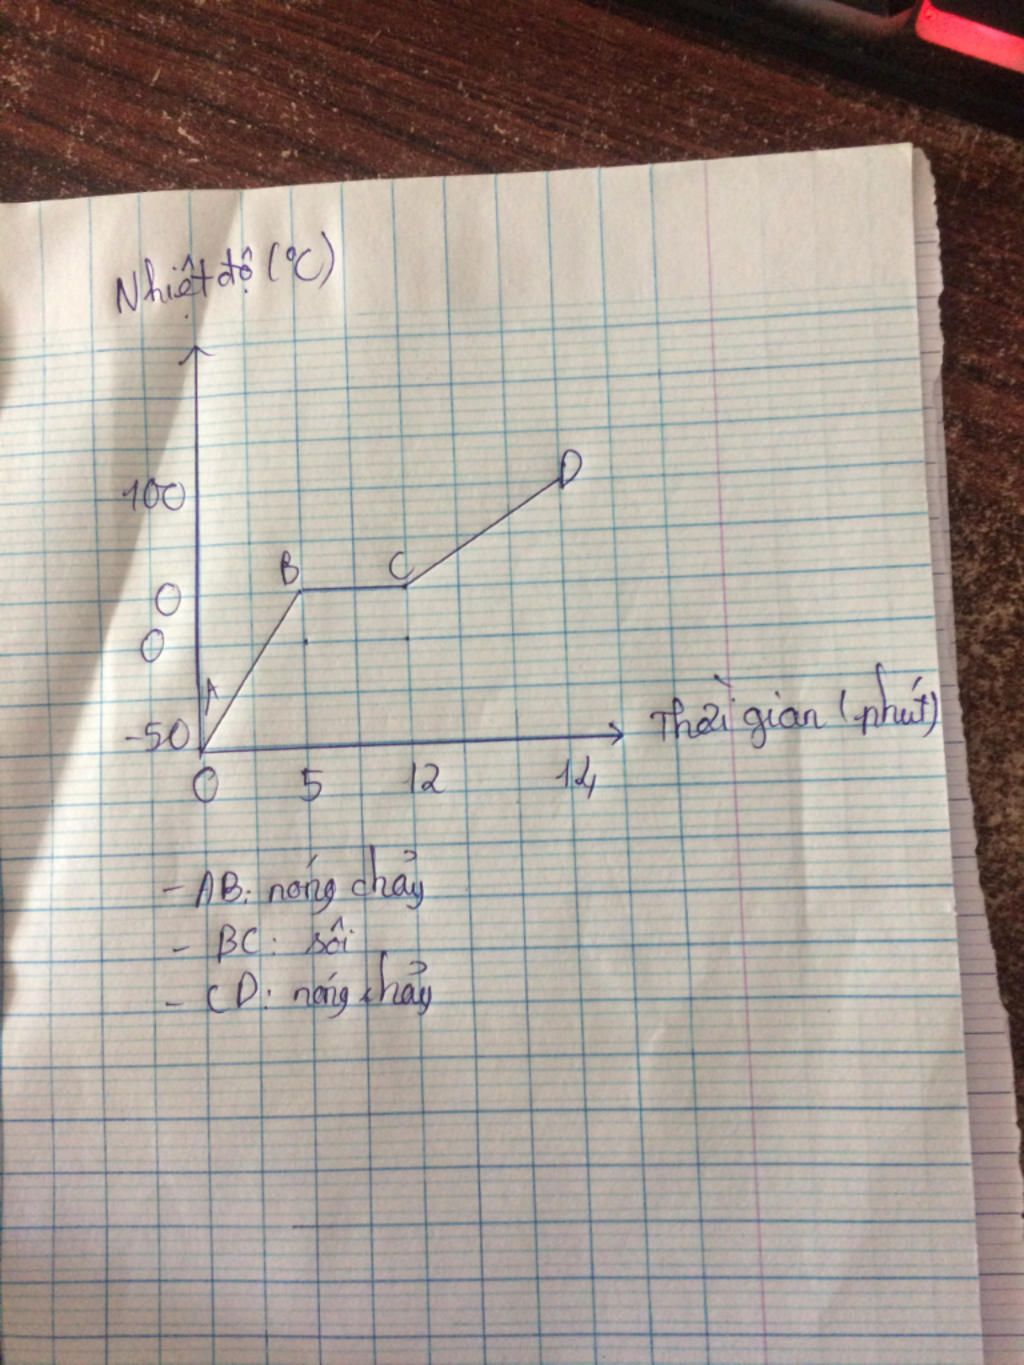 Nhiệt độ (°C)
100
B
C
D
0
0
A
-50
Thời gian (phút)
0 5 12 14
- AB: nóng chảy
- BC: sôi
- CD: nóng chảy